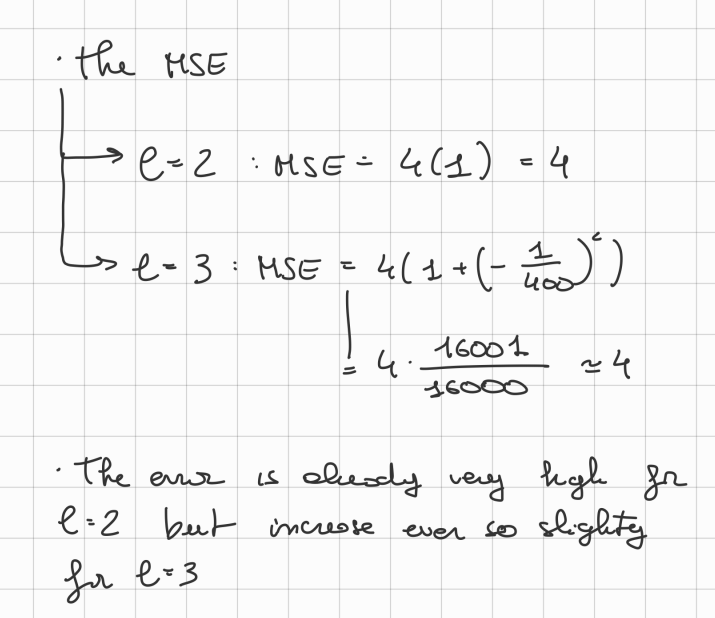 · the MSE
l=2 : MSE = 4(1) = 4
l=3 : MSE = 4(1+(-1/400)²)
= 4 · 16001/16000 ≃ 4
· The error is already very high for
l=2 but increase ever so slighty
for l=3